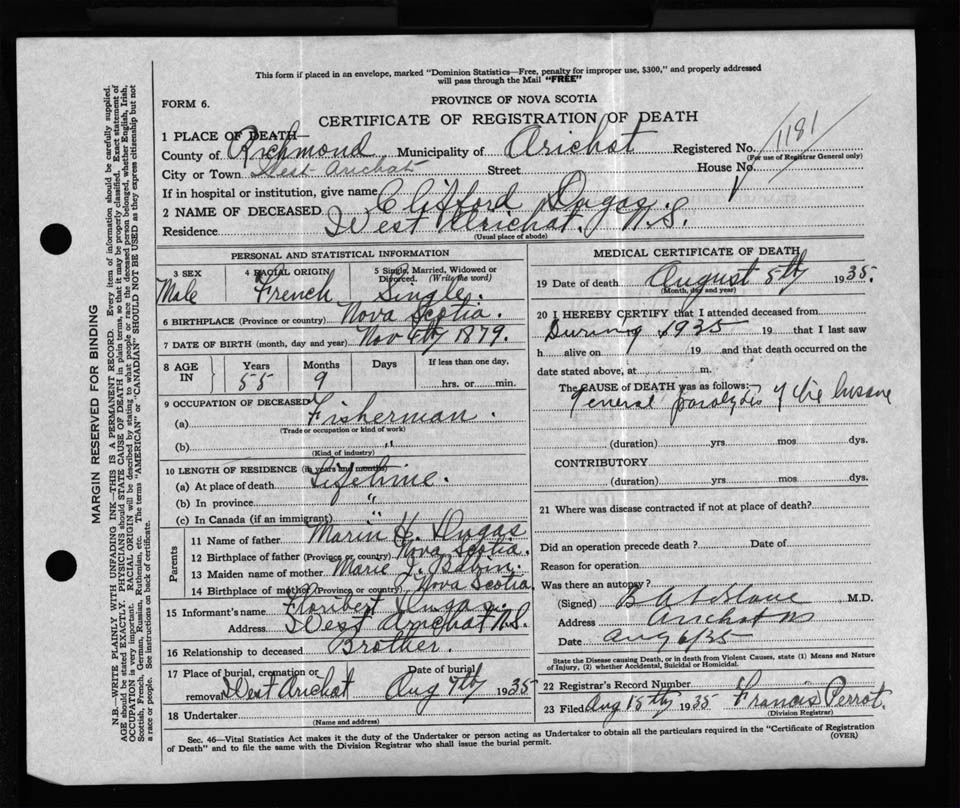 This form if placed in an envelope, marked "Dominion Statistics—Free, penalty for improper use, $300," and properly addressed
will pass through the Mail "FREE"
FORM 6.
PROVINCE OF NOVA SCOTIA
CERTIFICATE OF REGISTRATION OF DEATH
1181
1 PLACE OF DEATH—
County of Richmond Municipality of Arichat Registered No.
(For use of Registrar General only)
City or Town West Arichat Street House No.
If in hospital or institution, give name
2 NAME OF DECEASED Clifford Dugas.
Residence West Arichat. N.S.
(Usual place of abode)
PERSONAL AND STATISTICAL INFORMATION
3 SEX 4 RACIAL ORIGIN 5 Single, Married, Widowed or Divorced. (Write the word)
Male French Single.
6 BIRTHPLACE (Province or country) Nova Scotia.
7 DATE OF BIRTH (month, day and year) Nov 6th 1879.
8 AGE IN Years Months Days If less than one day,
55 9 hrs. or min.
9 OCCUPATION OF DECEASED
(a) Fisherman.
(Trade or occupation or kind of work)
(b)
(Kind of industry)
10 LENGTH OF RESIDENCE (in years and months)
(a) At place of death Lifetime.
(b) In province "
(c) In Canada (if an immigrant) "
Parents
11 Name of father Marin H. Dugas
12 Birthplace of father (Province or country) Nova Scotia.
13 Maiden name of mother Marie J. Babin.
14 Birthplace of mother (Province or country) Nova Scotia
15 Informant's name Floribert Dugas
Address West Arichat N.S.
16 Relationship to deceased Brother.
17 Place of burial, cremation or removal West Arichat Date of burial Aug 7th 1935
18 Undertaker
(Name and address)
MEDICAL CERTIFICATE OF DEATH
19 Date of death August 5th 1935.
(Month, day and year)
20 I HEREBY CERTIFY that I attended deceased from
During 1935 19 that I last saw
h alive on 19 and that death occurred on the
date stated above, at m.
The CAUSE OF DEATH was as follows:
General paralysis of the insane
(duration) yrs. mos. dys.
CONTRIBUTORY
(duration) yrs. mos. dys.
21 Where was disease contracted if not at place of death?
Did an operation precede death? Date of
Reason for operation
Was there an autopsy?
(Signed) M.D.
Address Arichat NS
Date Aug 6/35
State the Disease causing Death, or in death from Violent Causes, state (1) Means and Nature
of Injury, (2) whether Accidental, Suicidal or Homicidal.
22 Registrar's Record Number
23 Filed Aug 15th 1935 Francis Perrot.
(Division Registrar)
Sec. 46—Vital Statistics Act makes it the duty of the Undertaker or person acting as Undertaker to obtain all the particulars required in the "Certificate of Registration
of Death" and to file the same with the Division Registrar who shall issue the burial permit.
(OVER)
MARGIN RESERVED FOR BINDING
N.B.—WRITE PLAINLY WITH UNFADING INK—THIS IS A PERMANENT RECORD. Every item of information should be carefully supplied.
AGE should be stated EXACTLY. PHYSICIANS should STATE CAUSE OF DEATH in plain terms, so that it may be properly classified. Exact statement of
OCCUPATION is very important. RACIAL ORIGIN will be described by stating to what people or race the deceased person belonged, whether English, Irish,
Scottish, French, German, Russian, Ruthenian, etc. The terms "AMERICAN" or "CANADIAN" SHOULD NOT BE USED as they express citizenship but not
a race or people. See instructions on back of certificate.